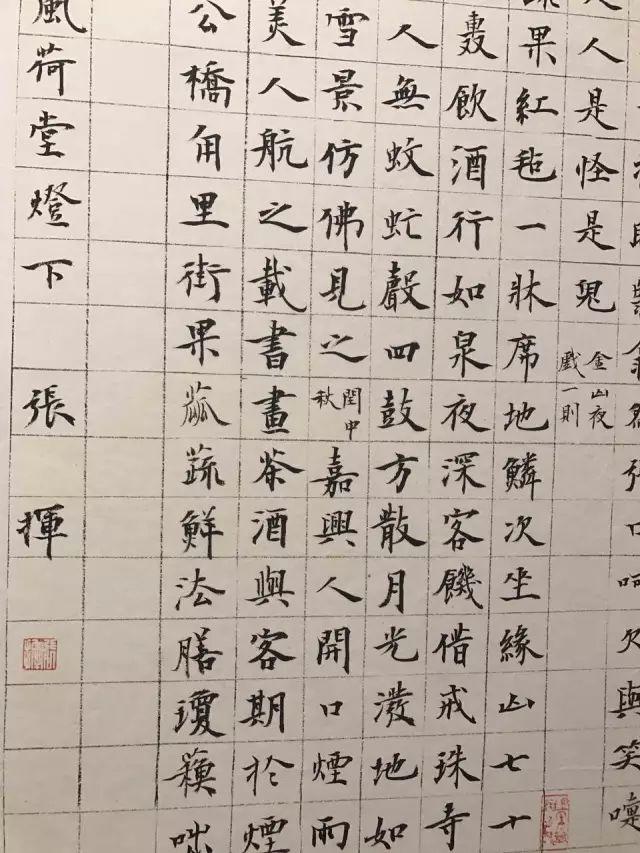 張口呵欠與笑嚏
人是怪是鬼
金山夜
戲一則
果紅毡一牀席地鱗次坐緣山七十
轟飲酒行如泉夜深客饑借戒珠寺
人無蚊虻聲四鼓方散月光潑地如
雪景仿佛見之
閏中
秋
嘉興人開口煙雨
美人航之載書畫茶酒與客期於煙
公橋甪里街果蓏蔬鮮法膳瓊蘇咄
風荷堂燈下 張 揮